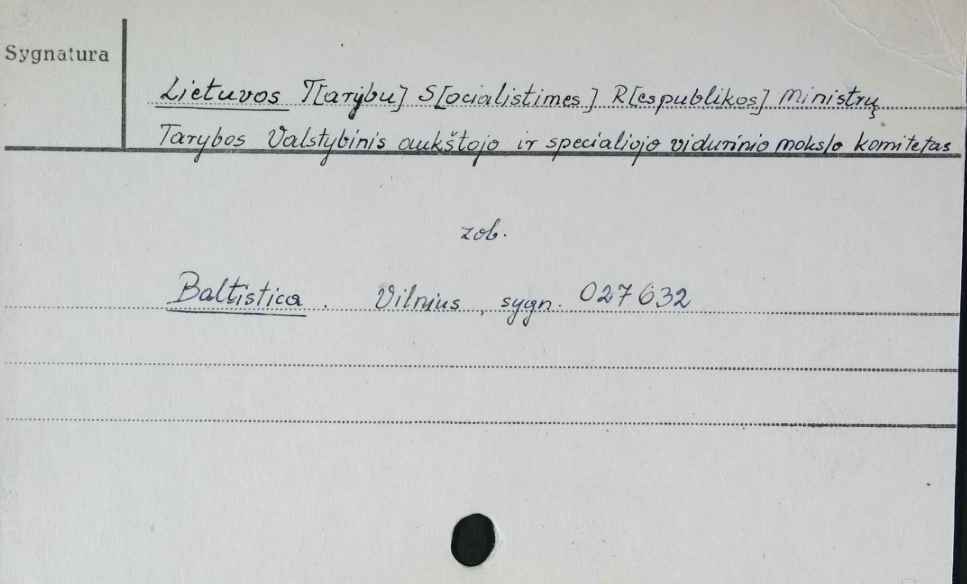 Sygnatura
Lietuvos T[arybų] S[ocialistimės] R[espublikos] Ministrų
Tarybos Valstybinis aukštojo ir specialiojo vidurinio mokslo komitetas
zob.
Baltistica. Vilnius, sygn. 027632